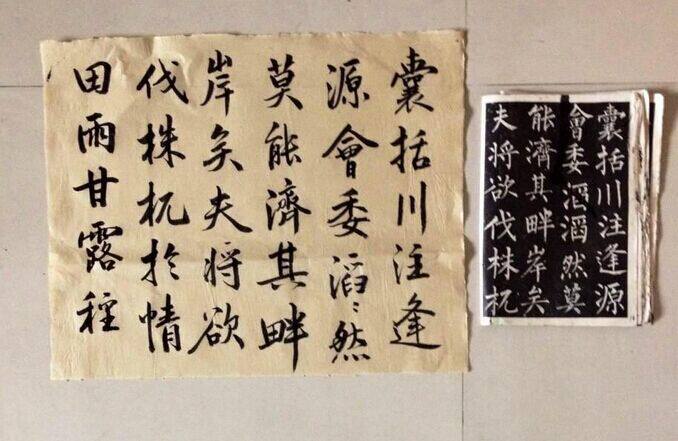 囊括川注逢
源會委滔〻然
莫能濟其畔
岸矣夫將欲
伐株杌於情
田雨甘露種
囊括川注逢源
會委滔滔然莫
能濟其畔岸矣
夫将欲伐株杌